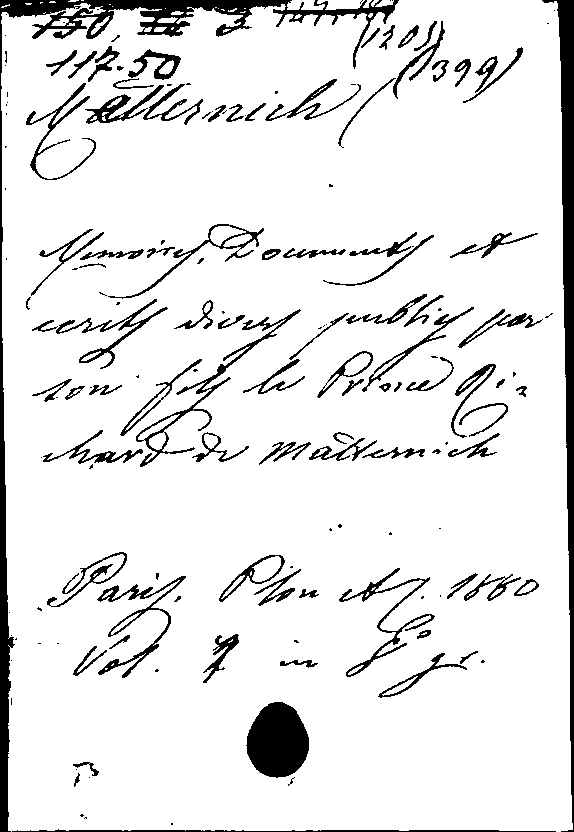 150, 3 147.
(1205)
117.50 (1399)
Matternich
Memoires, Documents et
ecrits divers publies par
son fils le Prince Ri-
chard de Matternich
Paris. Plon et 1880
Vol. 7 in 8° gr.